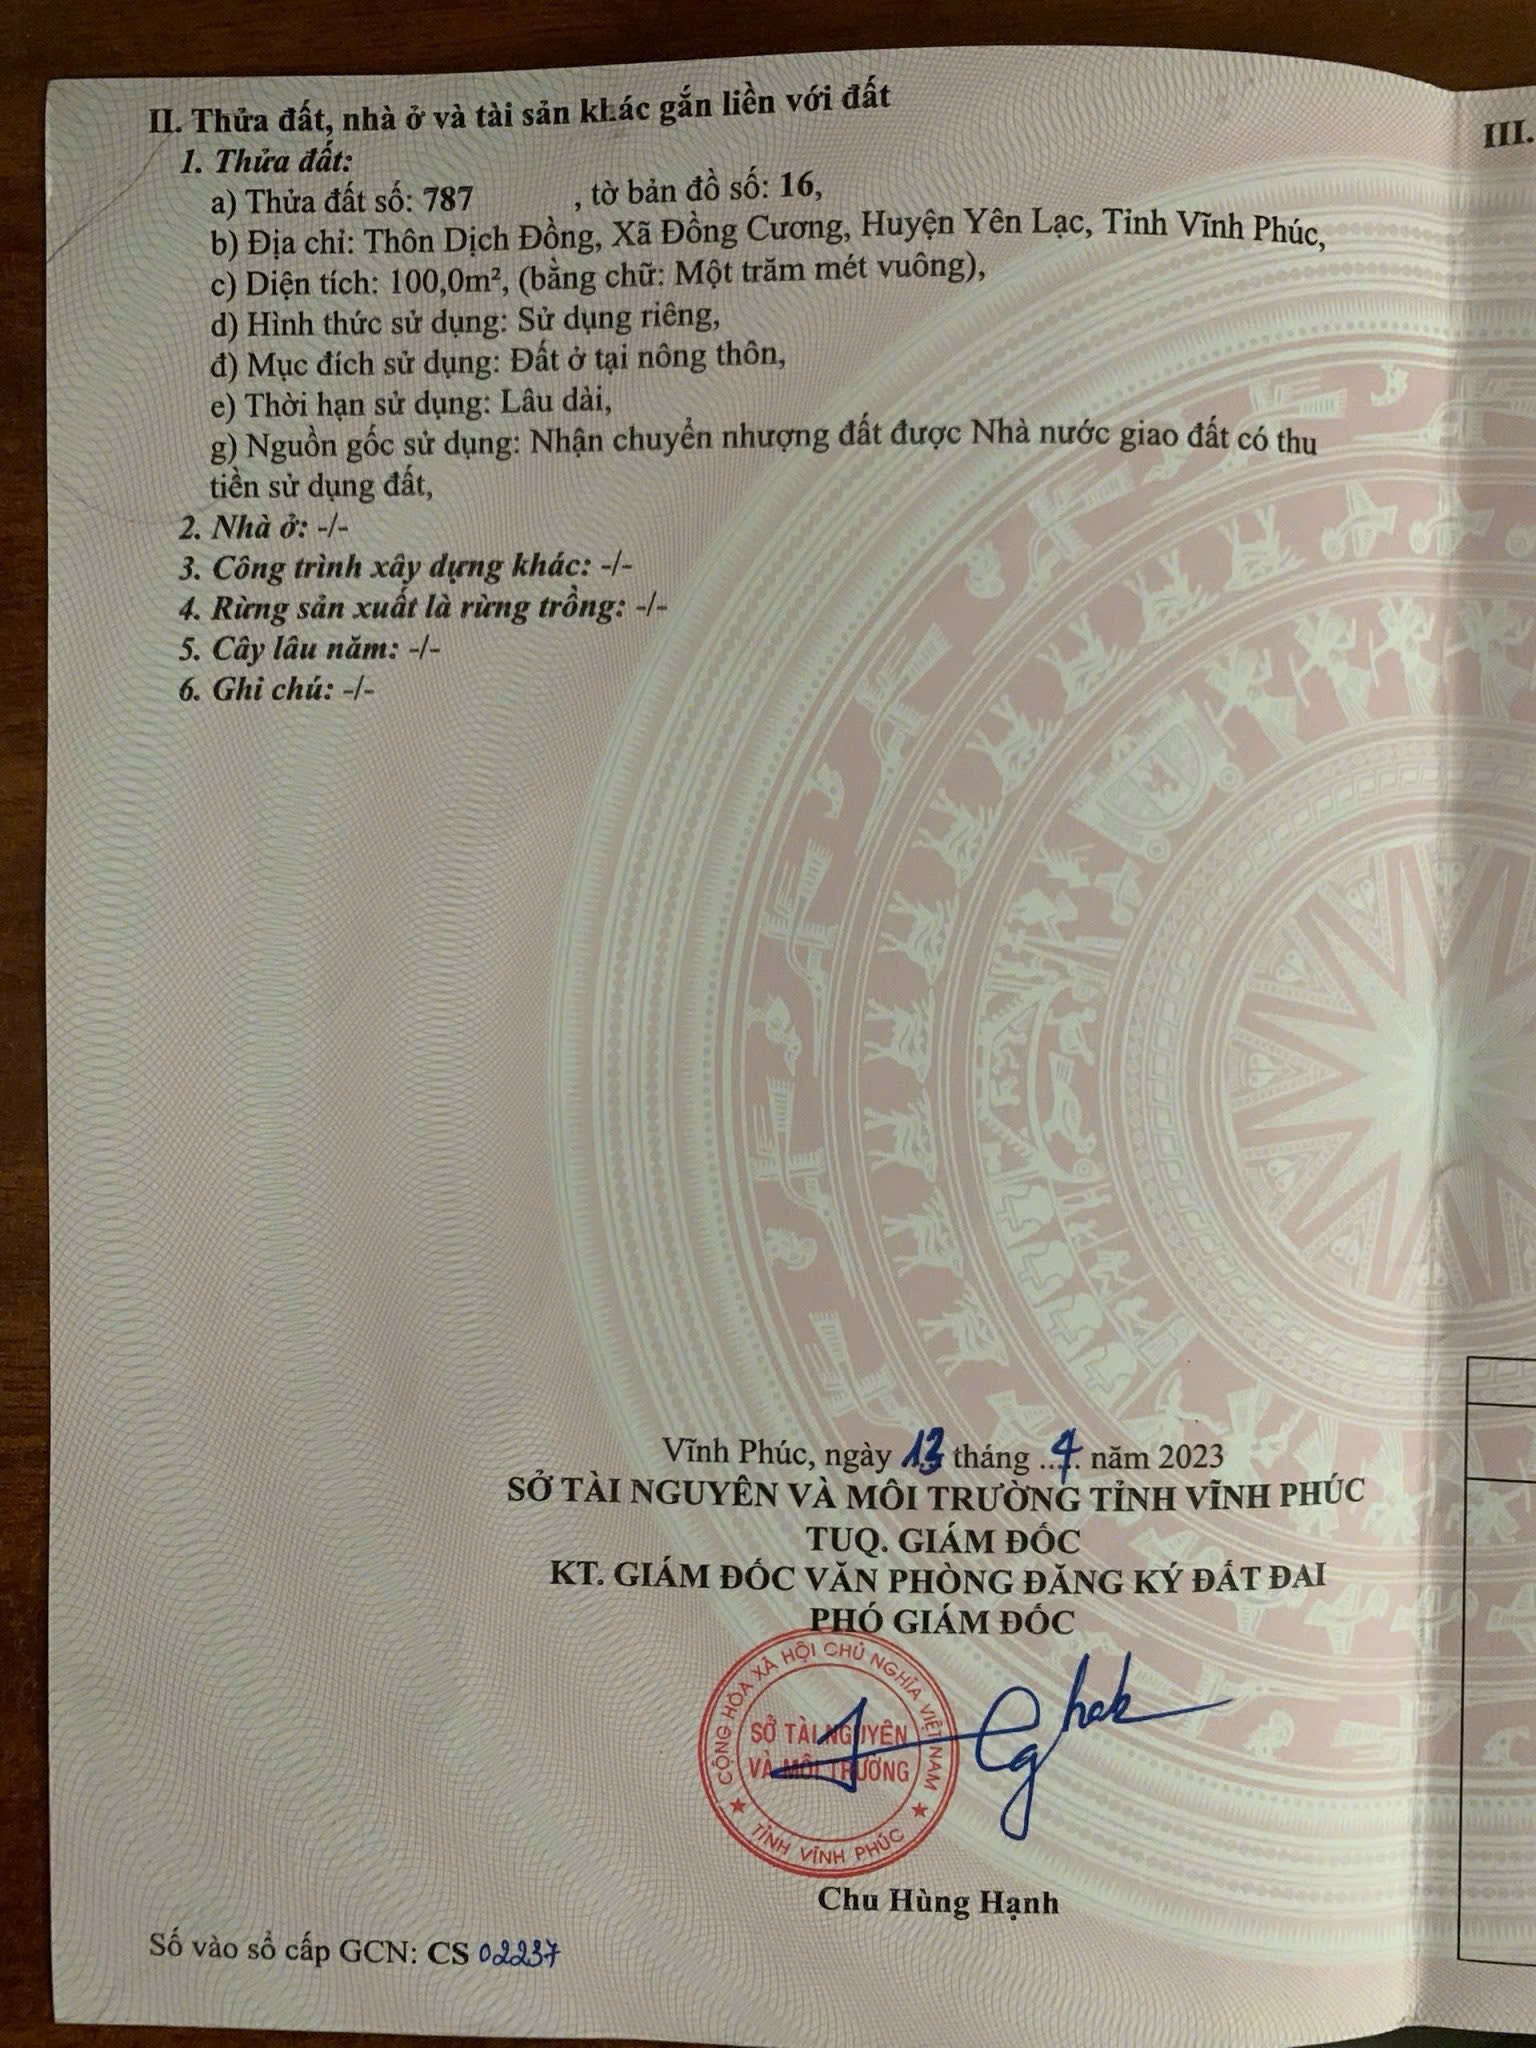 II. Thửa đất, nhà ở và tài sản khác gắn liền với đất
1. Thửa đất:
a) Thửa đất số: 787 , tờ bản đồ số: 16,
b) Địa chỉ: Thôn Dịch Đồng, Xã Đồng Cương, Huyện Yên Lạc, Tỉnh Vĩnh Phúc,
c) Diện tích: 100,0m², (bằng chữ: Một trăm mét vuông),
d) Hình thức sử dụng: Sử dụng riêng,
đ) Mục đích sử dụng: Đất ở tại nông thôn,
e) Thời hạn sử dụng: Lâu dài,
g) Nguồn gốc sử dụng: Nhận chuyển nhượng đất được Nhà nước giao đất có thu
tiền sử dụng đất,
2. Nhà ở: -/-
3. Công trình xây dựng khác: -/-
4. Rừng sản xuất là rừng trồng: -/-
5. Cây lâu năm: -/-
6. Ghi chú: -/-
III.
Vĩnh Phúc, ngày 13 tháng ..... năm 2023
SỞ TÀI NGUYÊN VÀ MÔI TRƯỜNG TỈNH VĨNH PHÚC
TUQ. GIÁM ĐỐC
KT. GIÁM ĐỐC VĂN PHÒNG ĐĂNG KÝ ĐẤT ĐAI
PHÓ GIÁM ĐỐC
CỘNG HÒA XÃ HỘI CHỦ NGHĨA VIỆT NAM
SỞ TÀI NGUYÊN
VÀ MÔI TRƯỜNG
★ TỈNH VĨNH PHÚC ★
Chu Hùng Hạnh
Số vào sổ cấp GCN: CS 02237